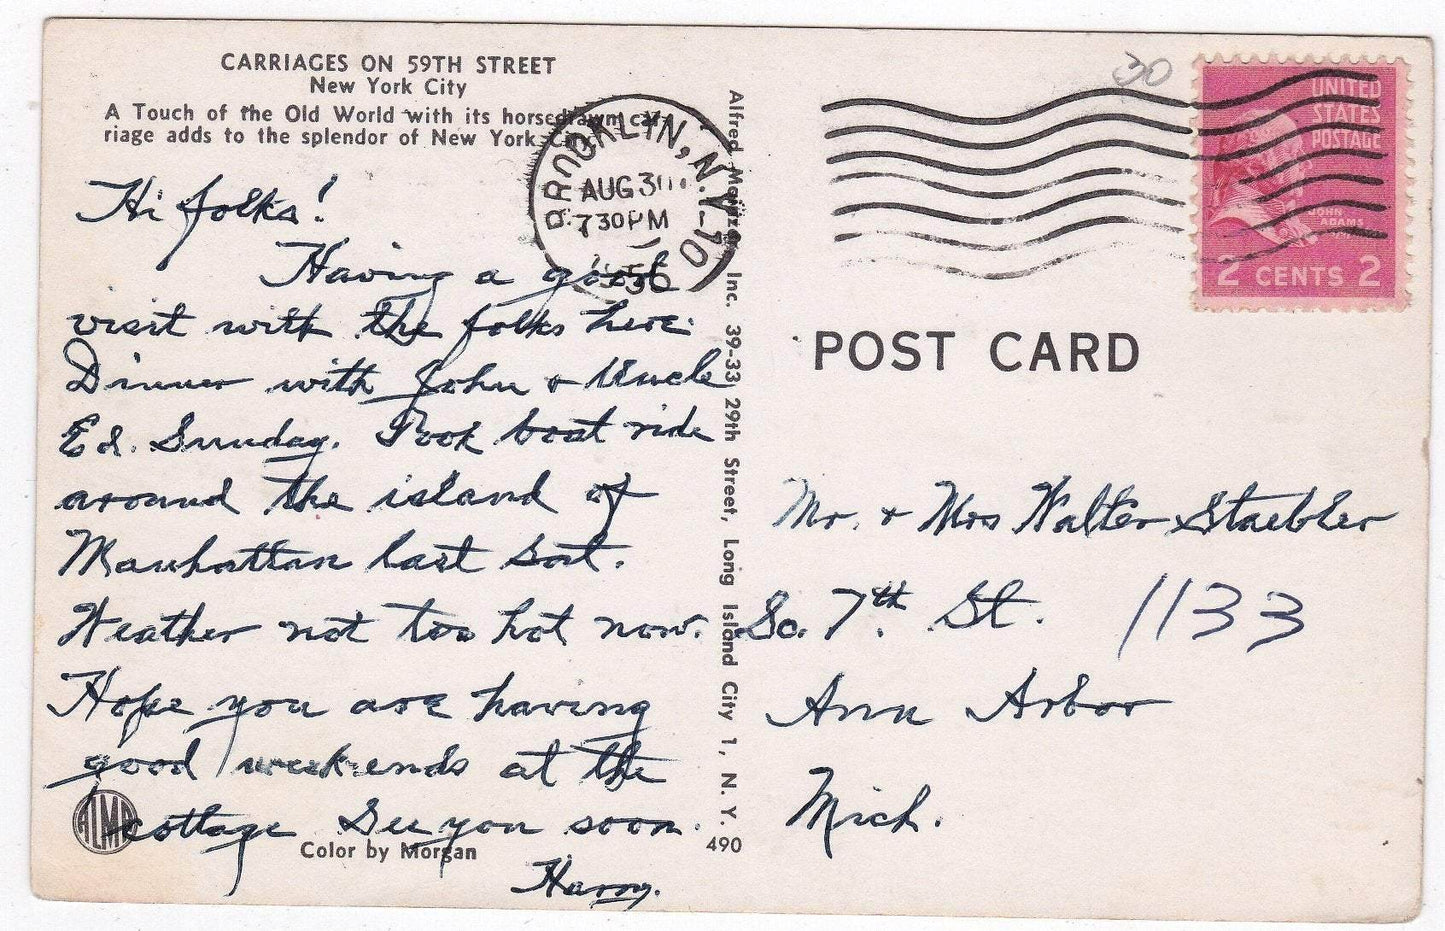 CARRIAGES ON 59TH STREET
New York City
A Touch of the Old World with its horsedrawn car-
riage adds to the splendor of New York City.
Hi folks!
Having a good
visit with the folks here.
Dinner with John + Uncle
Ed. Sunday. Took boat ride
around the island of
Manhattan last Sat.
Weather not too hot now.
Hope you are having
good week-ends at the
cottage See you soon.
Harry.
ALMA
Color by Morgan
490
Alfred Mainzer Inc. 39-33 29th Street, Long Island City 1, N. Y.
BROOKLYN, N.Y. 10
AUG 30
7 30 PM
1956
30
UNITED
STATES
POSTAGE
JOHN
ADAMS
2 CENTS 2
POST CARD
Mr. + Mrs Walter Staebler
So. 7th. St. 1133
Ann Arbor
Mich.